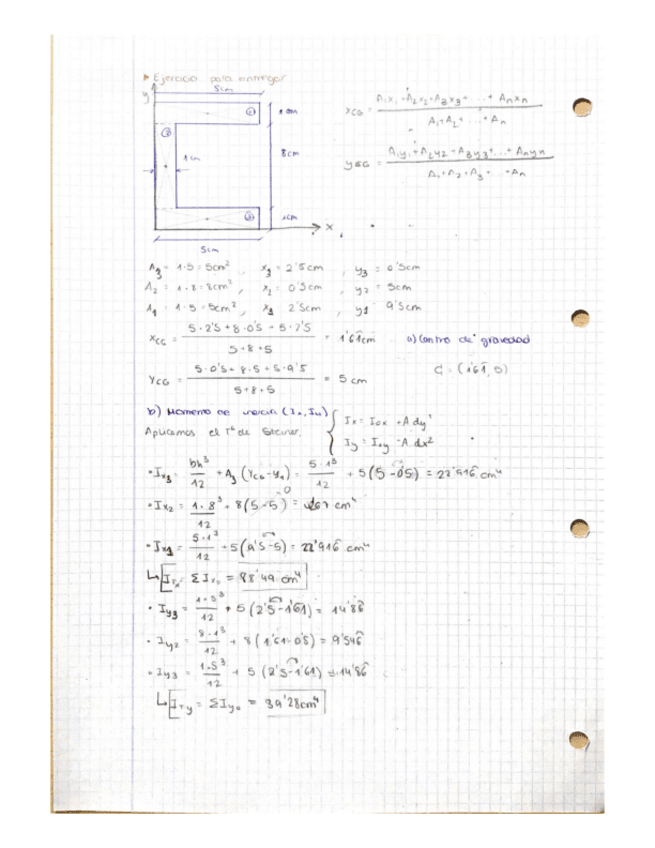 Ejercicio para entregar
5cm
y
1cm
8cm
1cm
1cm
x
5cm
x_CG = (A₁x₁+A₂x₂+A₃x₃+...+Aₙxₙ) / (A₁+A₂+...+Aₙ)
y_CG = (A₁y₁+A₂y₂+A₃y₃+...+Aₙyₙ) / (A₁+A₂+A₃+...+Aₙ)
A₃ = 1·5 = 5cm², x₃ = 2'5cm, y₃ = 0'5cm
A₂ = 1·8 = 8cm², x₂ = 0'5cm, y₂ = 5cm
A₁ = 1·5 = 5cm², x₁ 2'5cm, y₁ 9'5cm
x_CG = (5·2'5+8·0'5+5·2'5) / (5+8+5) = 1'61cm
a) Centro de gravedad
Y_CG = (5·0'5+8·5+5·9'5) / (5+8+5) = 5 cm
G = (1'61, 5)
b) Momento de inercia (Ix, Iy)
Aplicamos el Tª de Steiner.
Ix = Iox + A dy²
Iy = Ioy + A dx²
· Ix₃ = bh³/12 + A₃ (Y_CG - y₁) = 5·1³/12 + 5(5-0'5) = 22'916 cm⁴
· Ix₂ = 1·8³/12 + 8(5-5) = cm⁴
0
· Ix₁ = 5·1³/12 + 5(9'5-5) = 22'916 cm⁴
↳ I_Tx = ΣIxₙ = 88'49 cm⁴
· Iy₃ = 1·5³/12 + 5(2'5-1'61) = 14'86
· Iy₂ = 8·1³/12 + 8(1'61-0'5) = 9'546
· Iy₃ = 1·5³/12 + 5(2'5-1'61) = 14'86
↳ I_Ty = ΣIyₙ = 39'28cm⁴